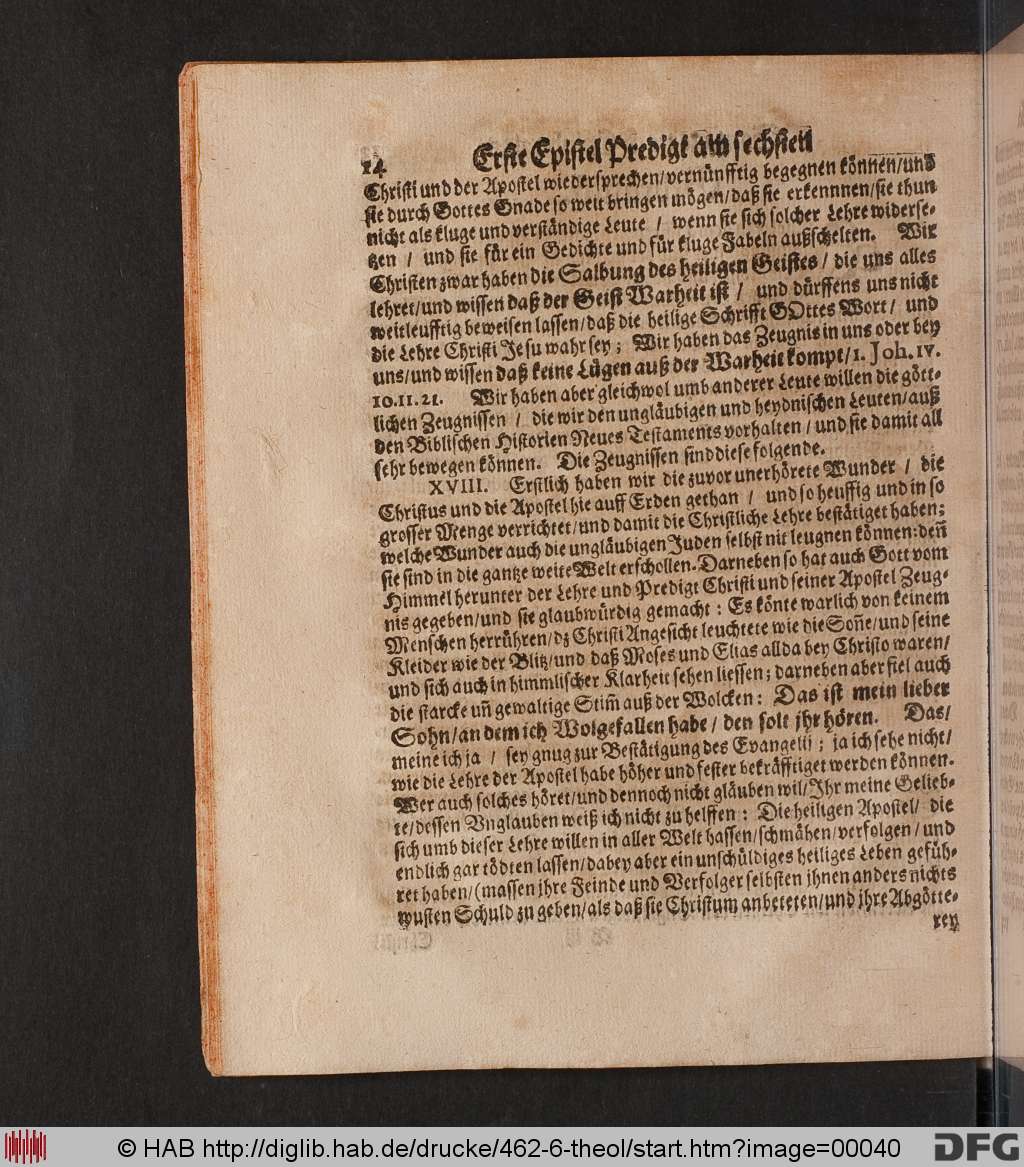 14 Erste Epistel Predigt am sechsten
Christi und der Apostel wiedersprechen/vernünfftig begegnen können/und
sie durch Gottes Gnade so weit bringen mögen/daß sie erkennnen/sie thun
nicht als kluge und verständige Leute / wenn sie sich solcher Lehre widerse-
tzen / und sie für ein Gedichte und für kluge Fabeln außschelten. Wir
Christen zwar haben die Salbung des heiligen Geistes / die uns alles
lehret/und wissen daß der Geist Warheit ist / und dürffens uns nicht
weitleufftig beweisen lassen/daß die heilige Schrifft GOttes Wort / und
die Lehre Christi Jesu wahr sey; Wir haben das Zeugnis in uns oder bey
uns/und wissen daß keine Lügen auß der Warheit kompt/1. Joh. IV.
10.11.21. Wir haben aber gleichwol umb anderer Leute willen die gött-
lichen Zeugnissen / die wir den ungläubigen und heydnischen Leuten/auß
den Biblischen Historien Neues Testaments vorhalten / und sie damit all
sehr bewegen können. Die Zeugnissen sind diese folgende.
XVIII. Erstlich haben wir die zuvor unerhörete Wunder / die
Christus und die Apostel hie auff Erden gethan / und so heuffig und in so
grosser Menge verrichtet/und damit die Christliche Lehre bestätiget haben;
welche Wunder auch die ungläubigen Juden selbst nit leugnen können:deñ
sie sind in die gantze weite Welt erschollen. Darneben so hat auch Gott vom
Himmel herunter der Lehre und Predigt Christi und seiner Apostel Zeug-
nis gegeben/und sie glaubwürdig gemacht: Es könte warlich von keinem
Menschen herrühren/dz Christi Angesicht leuchtete wie die Soñe/und seine
Kleider wie der Blitz/und daß Moses und Elias allda bey Christo waren/
und sich auch in himmlischer Klarheit sehen liessen; darneben aber fiel auch
die starcke uñ gewaltige Stim̃ auß der Wolcken: Das ist mein lieber
Sohn/an dem ich Wolgefallen habe / den solt jhr hören. Das/
meine ich ja / sey gnug zur Bestätigung des Evangelii; ja ich sehe nicht/
wie die Lehre der Apostel habe höher und fester bekräfftiget werden können.
Wer auch solches höret/und dennoch nicht gläuben wil/Jhr meine Gelieb-
te/dessen Vnglauben weiß ich nicht zu helffen: Die heiligen Apostel/ die
sich umb dieser Lehre willen in aller Welt hassen/schmähen/verfolgen/und
endlich gar tödten lassen/dabey aber ein unschüldiges heiliges Leben gefüh-
ret haben/(massen jhre Feinde und Verfolger selbsten jhnen anders nichts
wusten Schuld zu geben/als daß sie Christum anbeteten/und jhre Abgötte-
rey
© HAB http://diglib.hab.de/drucke/462-6-theol/start.htm?image=00040 DFG